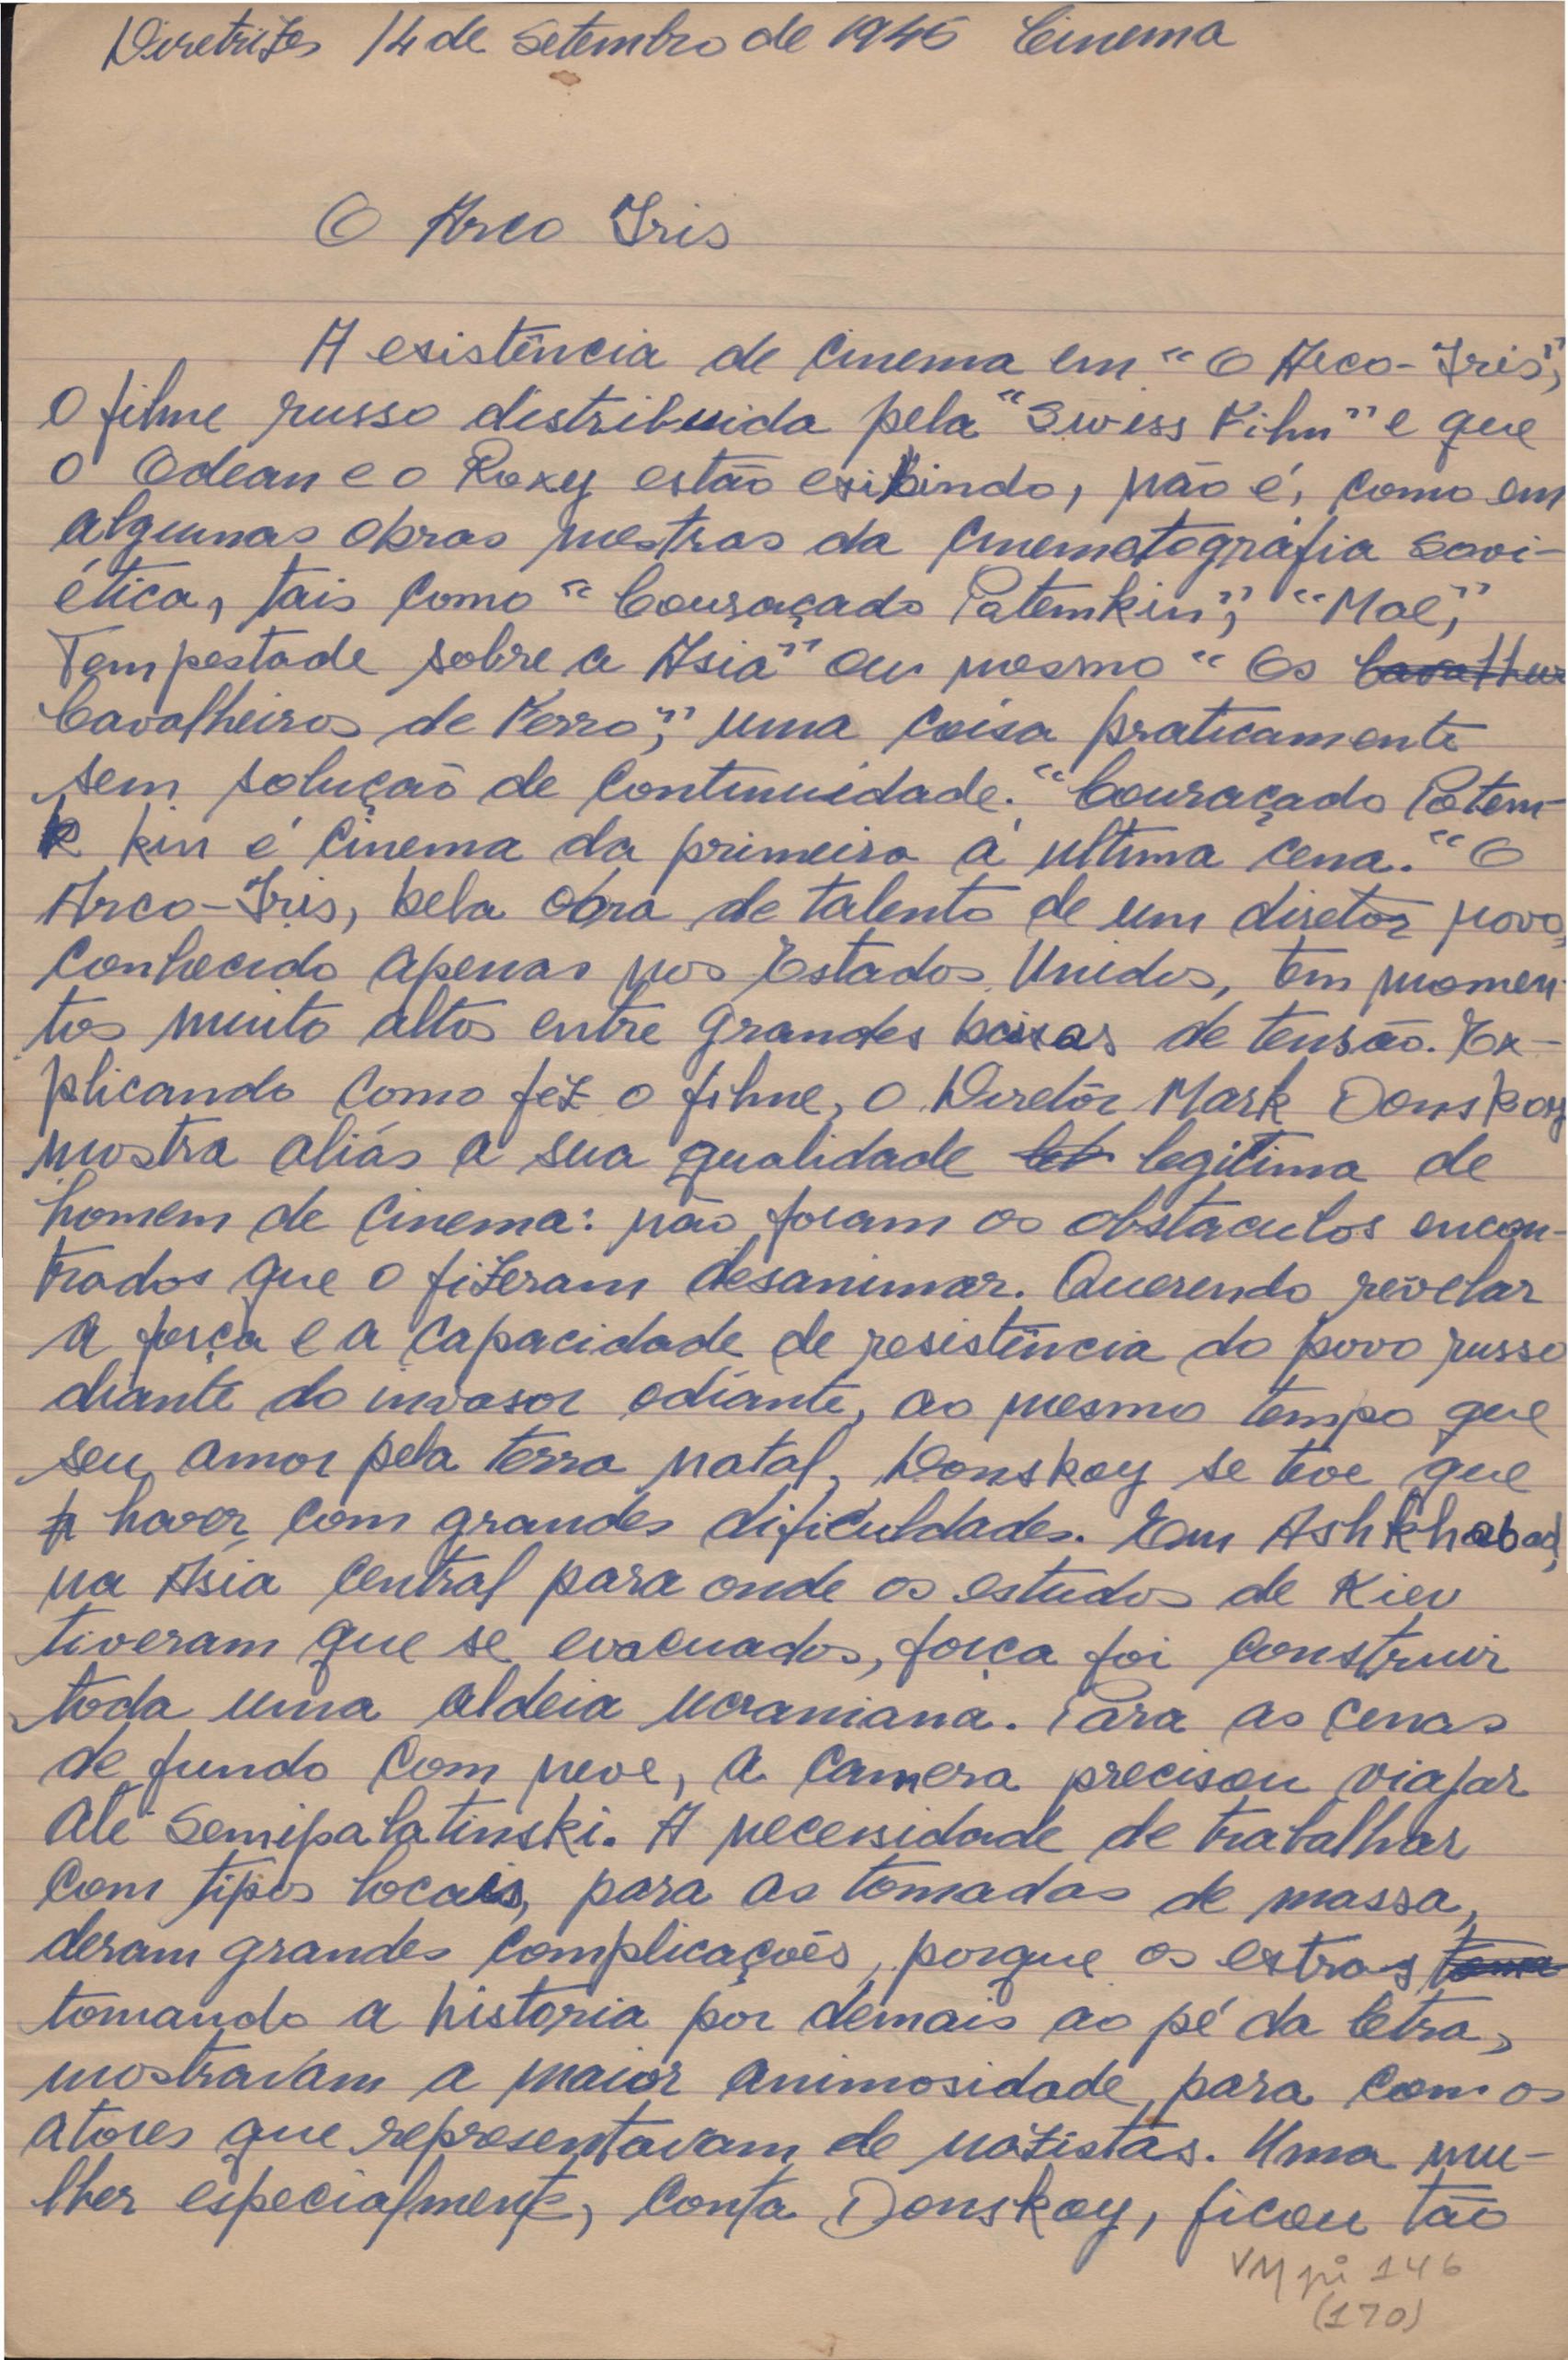 Diretrizes 14 de Setembro de 1945 Cinema
O Arco Iris
A existência de cinema em "O Arco-Iris",
O filme russo distribuida pela "Swiss Film" e que
o Odean e o Roxy estão exibindo, não é, como em
algumas obras mestras da cinematográfia sovi-
ética, tais como "Couraçado Potemkin", "Mae",
Tempestade sobre a Asia" ou mesmo "Os
Cavalheiros de Ferro", uma coisa praticamente
sem solução de continuidade. "Couraçado Potem-
kin é cinema da primeira á ultima cena. "O
Arco-Iris, bela obra de talento de um diretor novo,
conhecido apenas nos Estados Unidos, tem momen-
tos muito altos entre grandes baixas de tensão. Ex-
plicando como fêz o filme, o Diretôr Mark Donskoy
mostra aliás a sua qualidade legitima de
homem de cinema: não foram os obstaculos encon-
trados que o fizeram desanimar. Querendo revelar
a força e a capacidade de resistência do povo russo
diante do invasor odiante, ao mesmo tempo que
seu amor pela terra natal, Donskoy se teve que
haver com grandes dificuldades. Em Ashkhabad,
na Asia Central para onde os estudos de Kiev
tiveram que se evacuados, força foi construir
toda uma aldeia ucraniana. Para as cenas
de fundo com neve, a camera precisou viajar
até Semipalatinski. A necensidade de trabalhar
com tipos locais, para as tomadas de massa,
deram grandes complicações, porque os extras
tomando a historia por demais ao pé da letra,
mostravam a maior animosidade para com os
atores que representavam de nazistas. Uma mu-
lher especialmente, conta Donskoy, ficou tão
VM pi 146
(170)